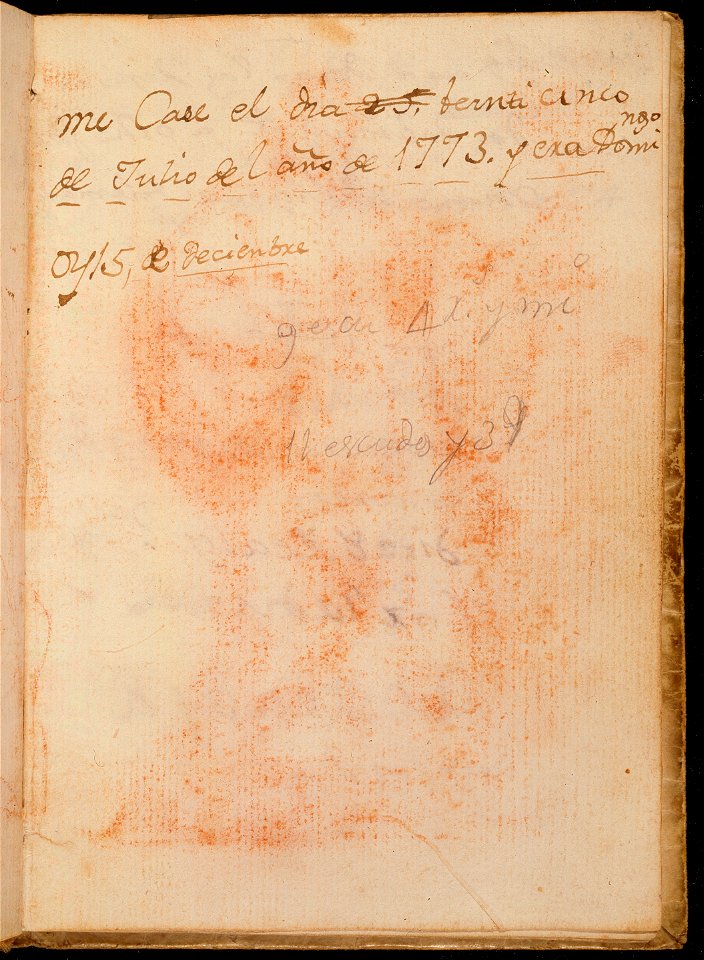 me Case el dia 25, bernti cinco
de Julio del año de 1773. y era Domi
ngo
oy 15, de Deciembre
4 y mi
11 escudos y 3